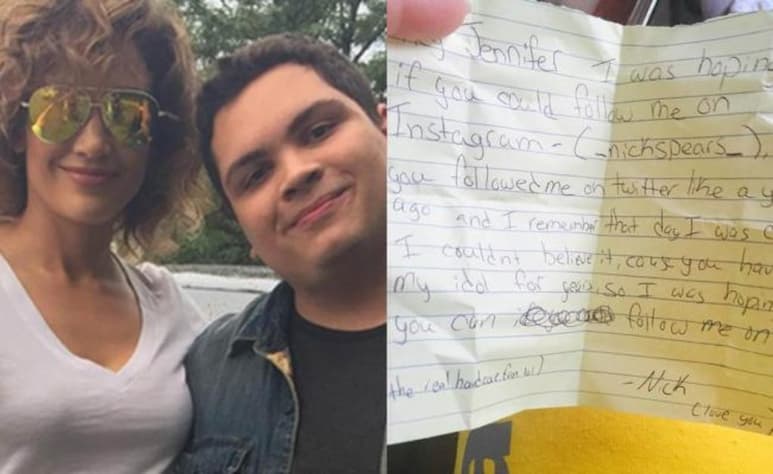 Jennifer I was hoping
if you could follow me on
Instagram - (_nickspears_),
you followed me on twitter like a
ago and I remember that day I was
I couldnt believe it, cous you
my idol for years, so I was
you can follow me on
the
- Nick
(love you